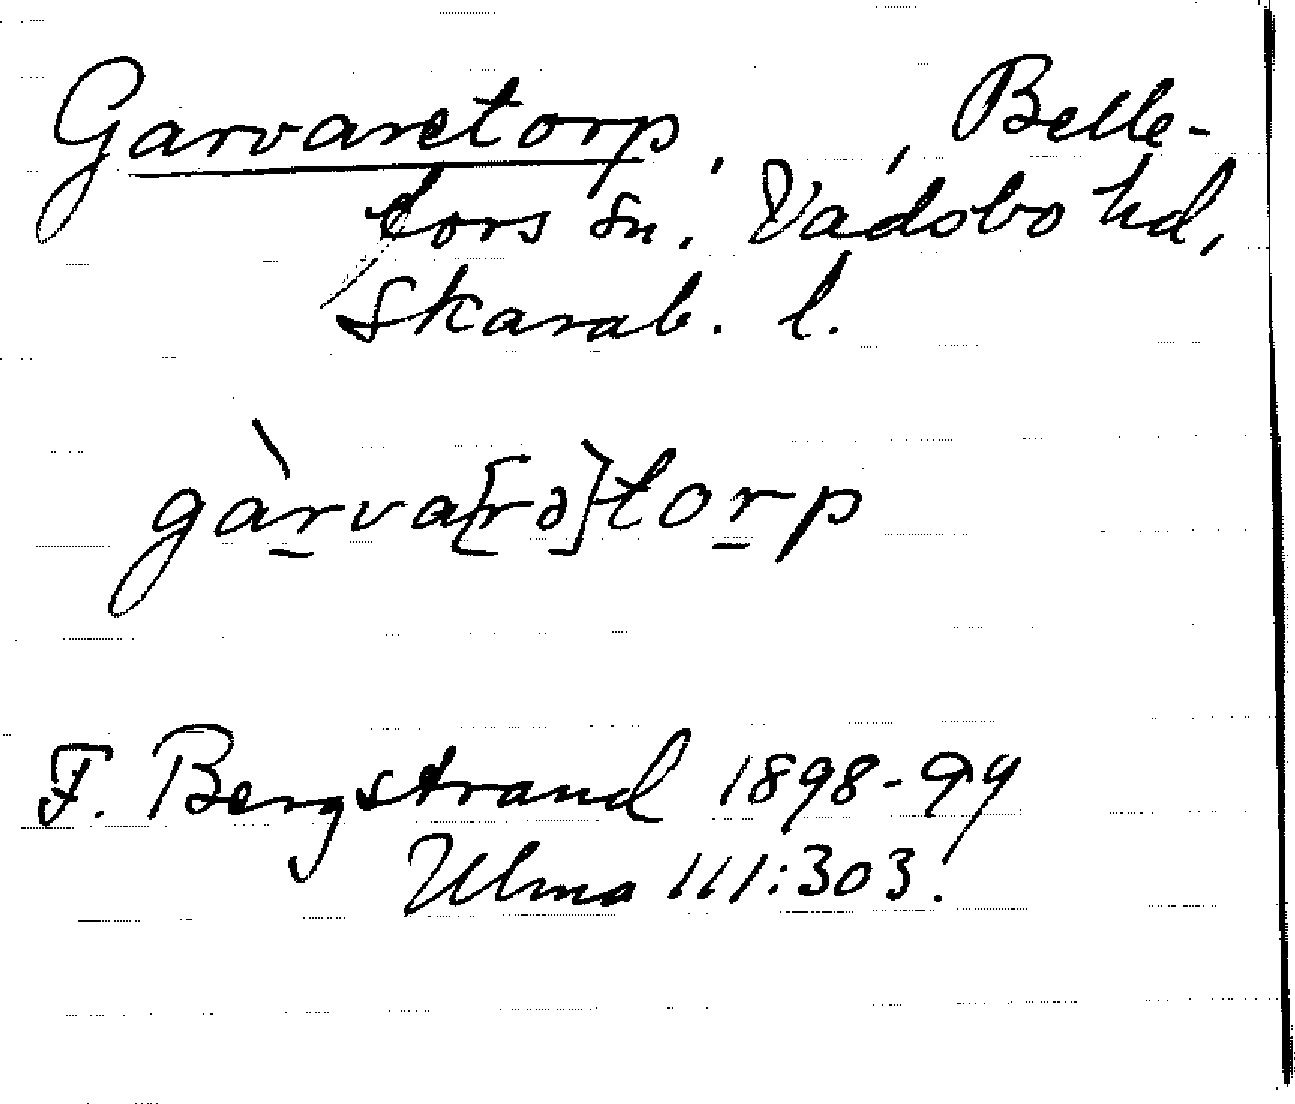 Garvaretorp, , Belle-
fors sn, Vadsbo hd,
Skarab. l.
gàrva[rə]torp
F. Bergstrand 1898-99
Ulma 111:303.